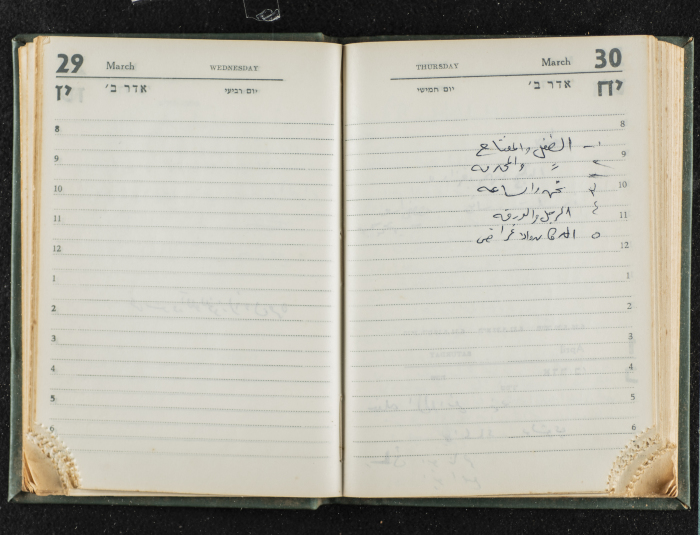 29 March WEDNESDAY
יז אדר ב׳ יום רביעי
8
9
10
11
12
1
2
3
4
5
6
THURSDAY March 30
יום חמישי אדר ב׳ יח
8
١ - الطفل والمفتاح
9
٢ = والمدرسة
10
٣ والساعة
11
٤ الرجل والورقة
12
٥
1
2
3
4
5
6